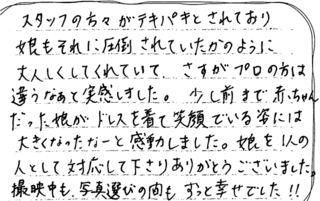 スタッフの方々がテキパキとされており
娘もそれに圧倒されていたかのように
大人しくしてくれていて、さすがプロの方は
違うなぁと実感しました。少し前まで赤ちゃん
だった娘がドレスを着て笑顔でいる姿には
大きくなったなーと感動しました。娘を1人の
人として対応して下さりありがとうございました。
撮映中も、写真選びの間もずっと幸せでした!!